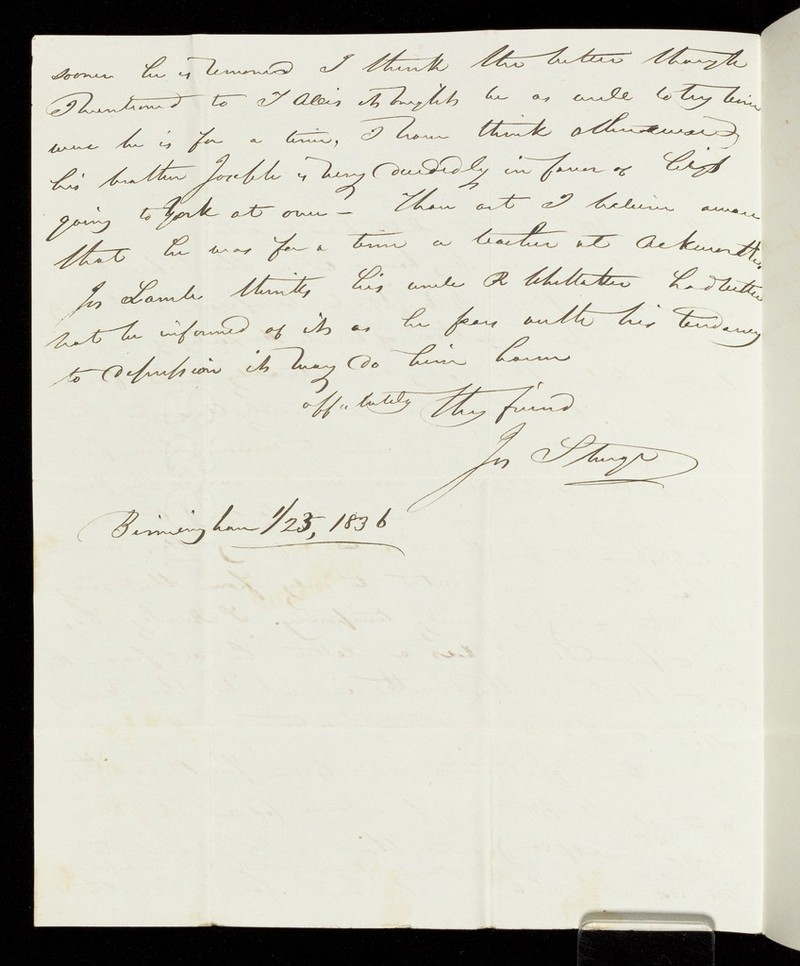 sooner he is removed I think the better though
I mentioned to T Allis it might be as well to try him
were he is for a time, I now think otherwise
his brother Joseph is very decidedly in favor of his
going to York at once – Thou art I believe aware
that he was for a time a teacher at Ackworth
Jos Lamb thinks his uncle R Whittaker had better
not be informed of it as he fears with his tendency
to depression it may do him harm
aff.ately thy friend
Jos Sturge
Birmingham 1/25, 1836